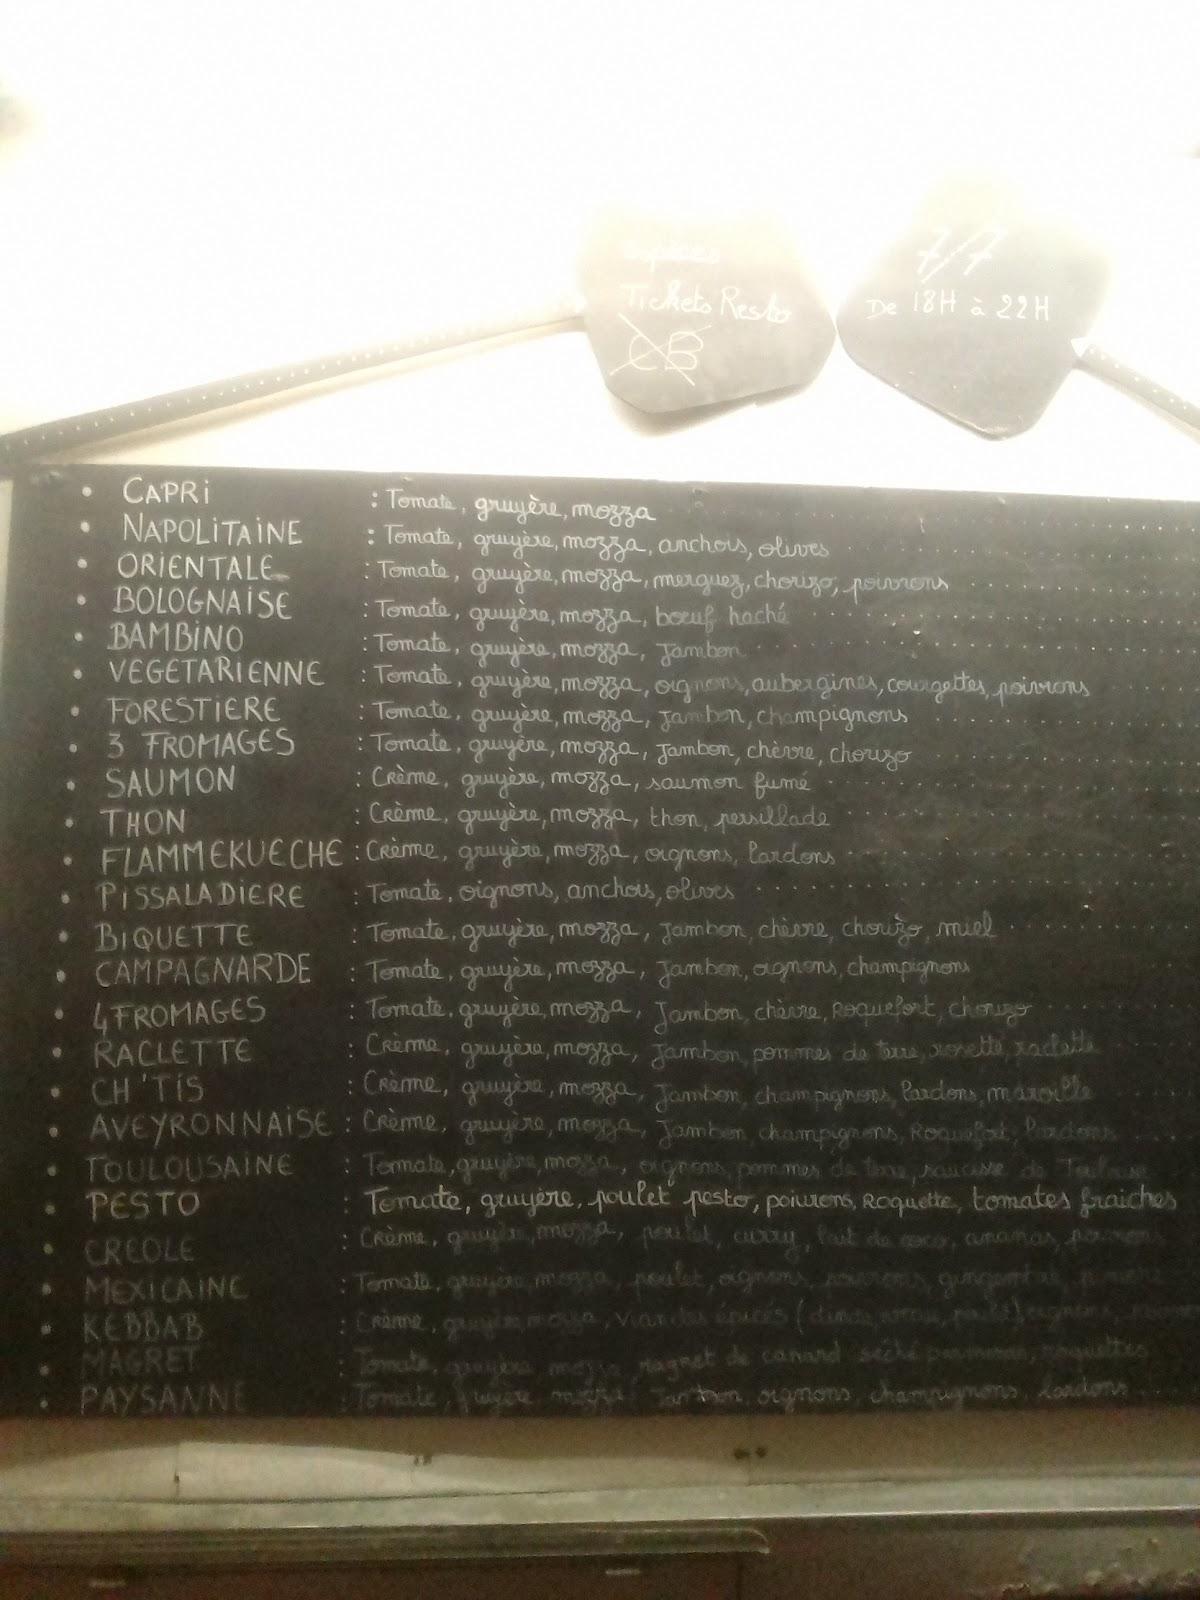 espèces
Tickets Resto
CB
7/7
De 18H à 22H
• CAPRI : Tomate, gruyère, mozza
• NAPOLITAINE : Tomate, gruyère, mozza, anchois, olives
• ORIENTALE : Tomate, gruyère, mozza, merguez, chorizo, poivrons
• BOLOGNAISE : Tomate, gruyère, mozza, bœuf haché
• BAMBINO : Tomate, gruyère, mozza, Jambon
• VEGETARIENNE : Tomate, gruyère, mozza, oignons, aubergines, courgettes, poivrons
• FORESTIERE : Tomate, gruyère, mozza, Jambon, champignons
• 3 FROMAGES : Tomate, gruyère, mozza, Jambon, chèvre, chorizo
• SAUMON : Crème, gruyère, mozza, saumon fumé
• THON : Crème, gruyère, mozza, thon, persillade
• FLAMMEKUECHE : Crème, gruyère, mozza, oignons, lardons
• PISSALADIERE : Tomate, oignons, anchois, olives
• BIQUETTE : Tomate, gruyère, mozza, Jambon, chèvre, chorizo, miel
• CAMPAGNARDE : Tomate, gruyère, mozza, Jambon, oignons, champignons
• 4 FROMAGES : Tomate, gruyère, mozza, Jambon, chèvre, Roquefort, chorizo
• RACLETTE : Crème, gruyère, mozza, Jambon, pommes de terre, rosette, raclette
• CH'TIS : Crème, gruyère, mozza, Jambon, champignons, lardons, maroille
• AVEYRONNAISE : Crème, gruyère, mozza, Jambon, champignons, Roquefort, lardons
• TOULOUSAINE : Tomate, gruyère, mozza, oignons, pommes de terre, saucisse de Toulouse
• PESTO : Tomate, gruyère, poulet pesto, poivrons, Roquette, tomates fraiches
• CREOLE : Crème, gruyère, mozza, poulet, curry, lait de coco, ananas, poivrons
• MEXICAINE : Tomate, gruyère, mozza, poulet, oignons, poivrons, gingembre,
• KEBBAB : Crème, gruyère, mozza, viandes épicés (dinde, veau, poulet) oignons,
• MAGRET : Tomate, gruyère mozza, Magret de canard séché parmesan, roquettes
• PAYSANNE : Tomate, gruyère mozza Jambon, oignons, champignons, lardons